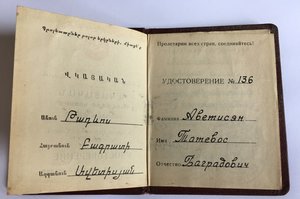 Պրոլետարներ բոլոր երկրների, միացե՛ք
ՎԿԱՅԱԿԱՆ
Անուն Թադևոս
Հայրանուն Բագրատի
Ազգանուն Ավետիսյան
Пролетарии всех стран, соединяйтесь!
УДОСТОВЕРЕНИЕ № 136
Фамилия Аветисян
Имя Татевос
Отчество Баградович